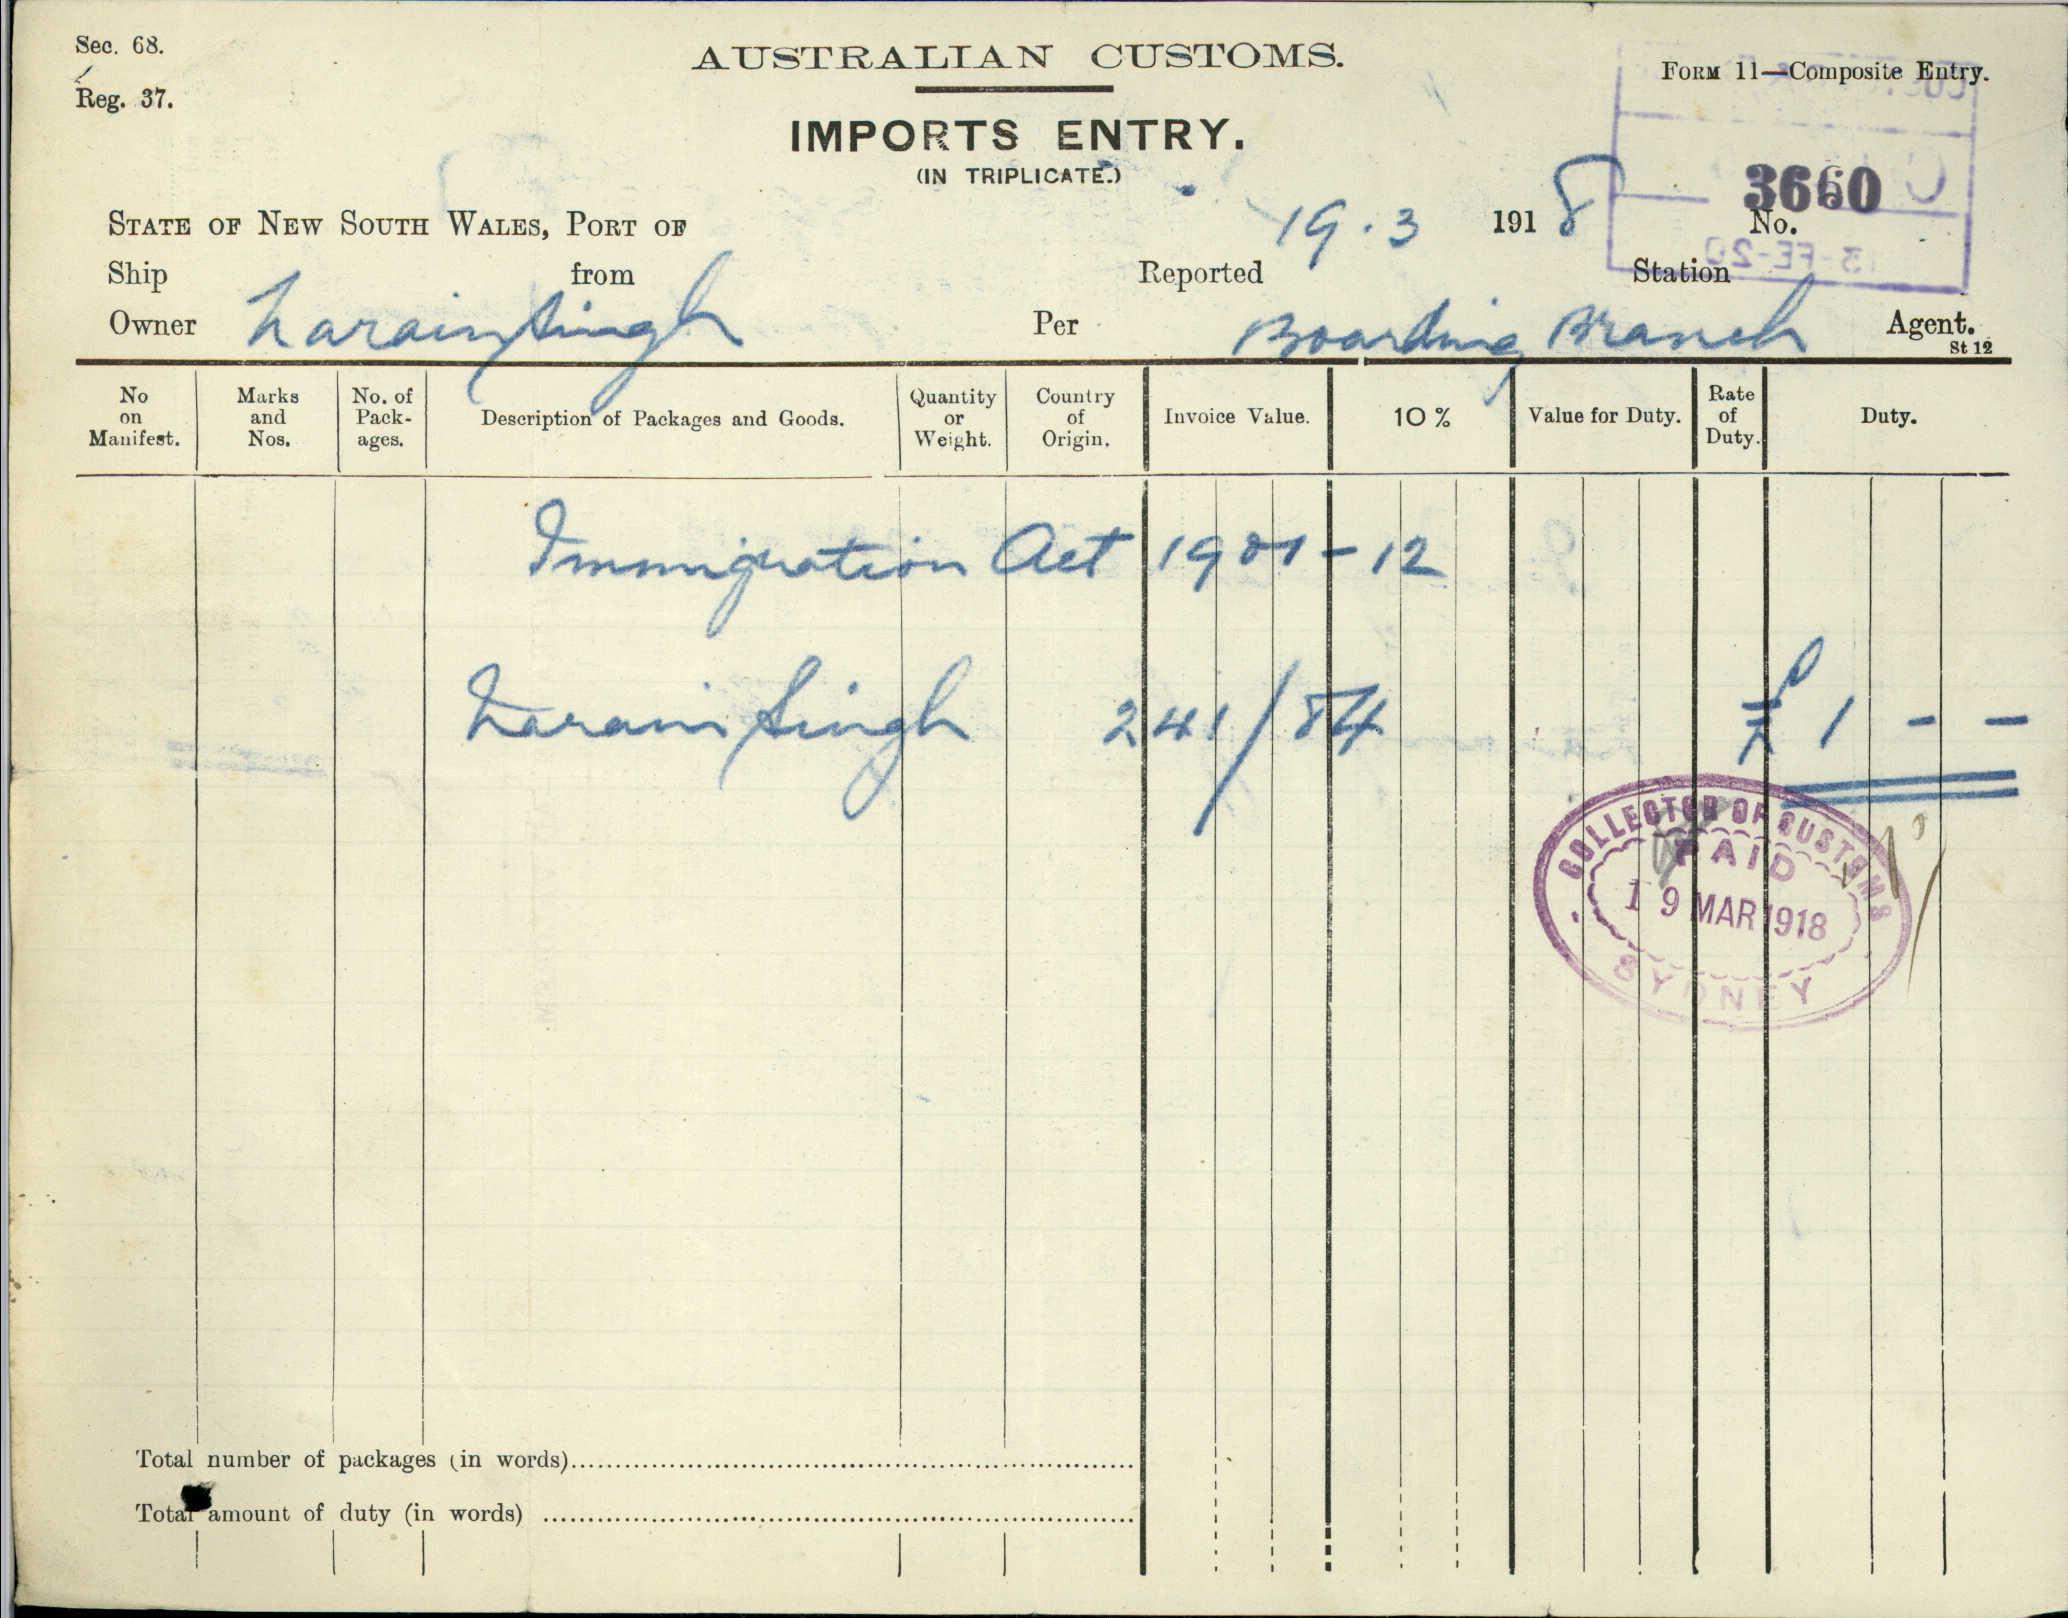 Sec. 68.
Reg. 37.
AUSTRALIAN CUSTOMS.
FORM 11—Composite Entry.
IMPORTS ENTRY.
(IN TRIPLICATE.)
3660
STATE OF NEW SOUTH WALES, PORT OF 19.3 1918 No.
Ship from Reported Station
Owner Narain Singh Per Boarding Branch Agent.
St 12
No on Manifest. Marks and Nos. No. of Pack-ages. Description of Packages and Goods. Quantity or Weight. Country of Origin. Invoice Value. 10 % Value for Duty. Rate of Duty. Duty.
Immigration Act 1901-12
Narain Singh 241/84 £1 - -
COLLECTOR OF CUSTOMS
PAID
19 MAR 1918
SYDNEY
Total number of packages (in words)
Total amount of duty (in words)